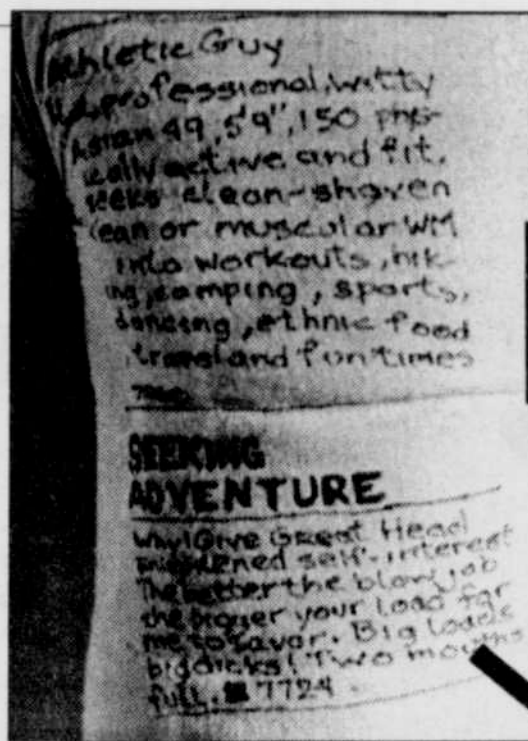 Athletic Guy
professional, witty
Asian 49, 5'9", 150 phys-
ically active and fit,
seeks clean-shaven
lean or muscular WM
into workouts, hik-
ing, camping, sports,
dancing, ethnic food
travel and fun times
SEEKING
ADVENTURE
Why I Give Great Head
self-interest
The better the blow job
the bigger your load for
me to savor. Big loads
big dicks! Two mouths
full. 7724